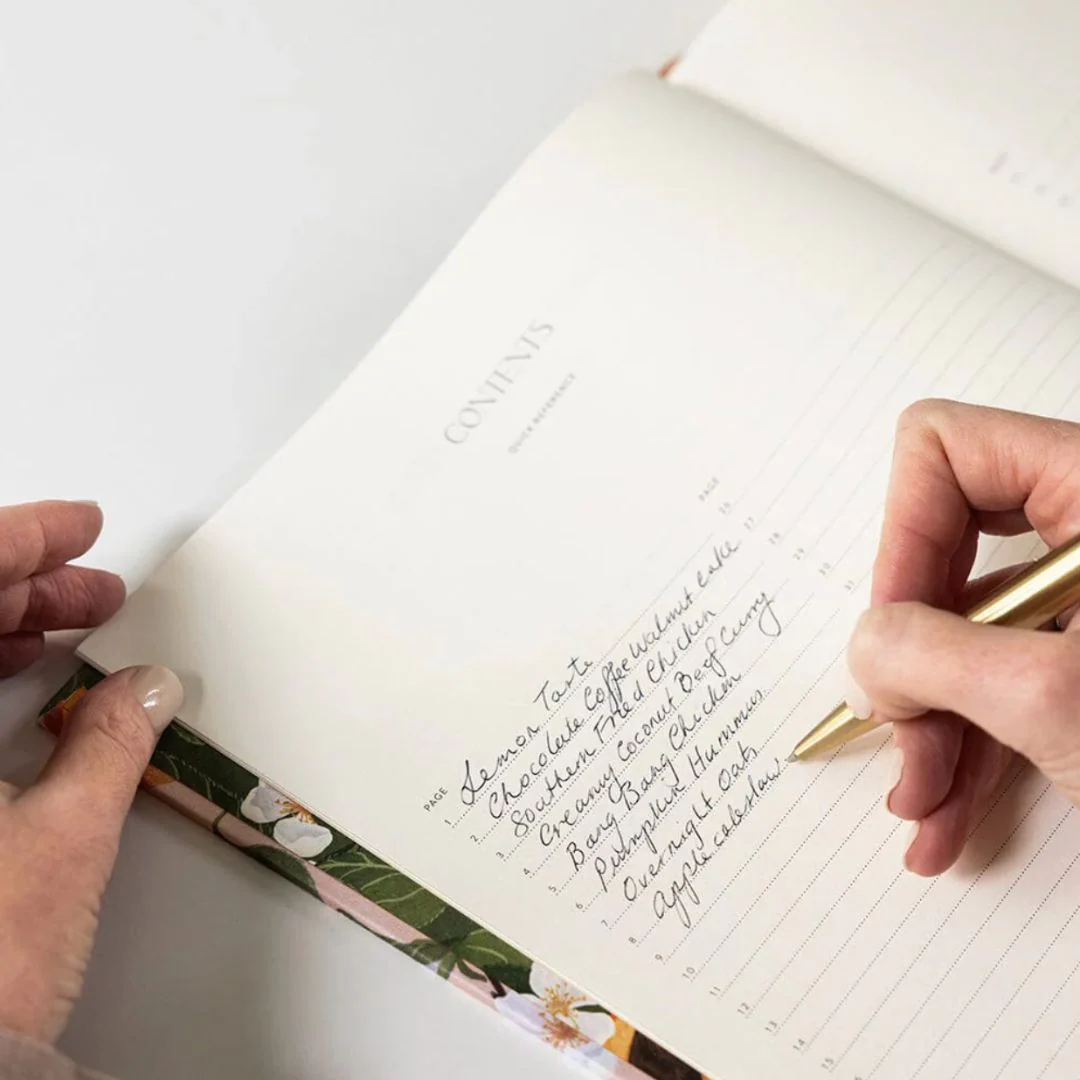 CONTENTS
QUICK REFERENCE
PAGE
1 Lemon Tart
2 Chocolate Coffee Walnut cake
3 Southern Fried Chicken
4 Creamy Coconut Beef Curry
5 Bang Bang Chicken
6 Pumpkin Hummus
7 Overnight Oats
8 Apple coleslaw
9
10
11
12
13
14
15
PAGE
26
27
28
29
30
31